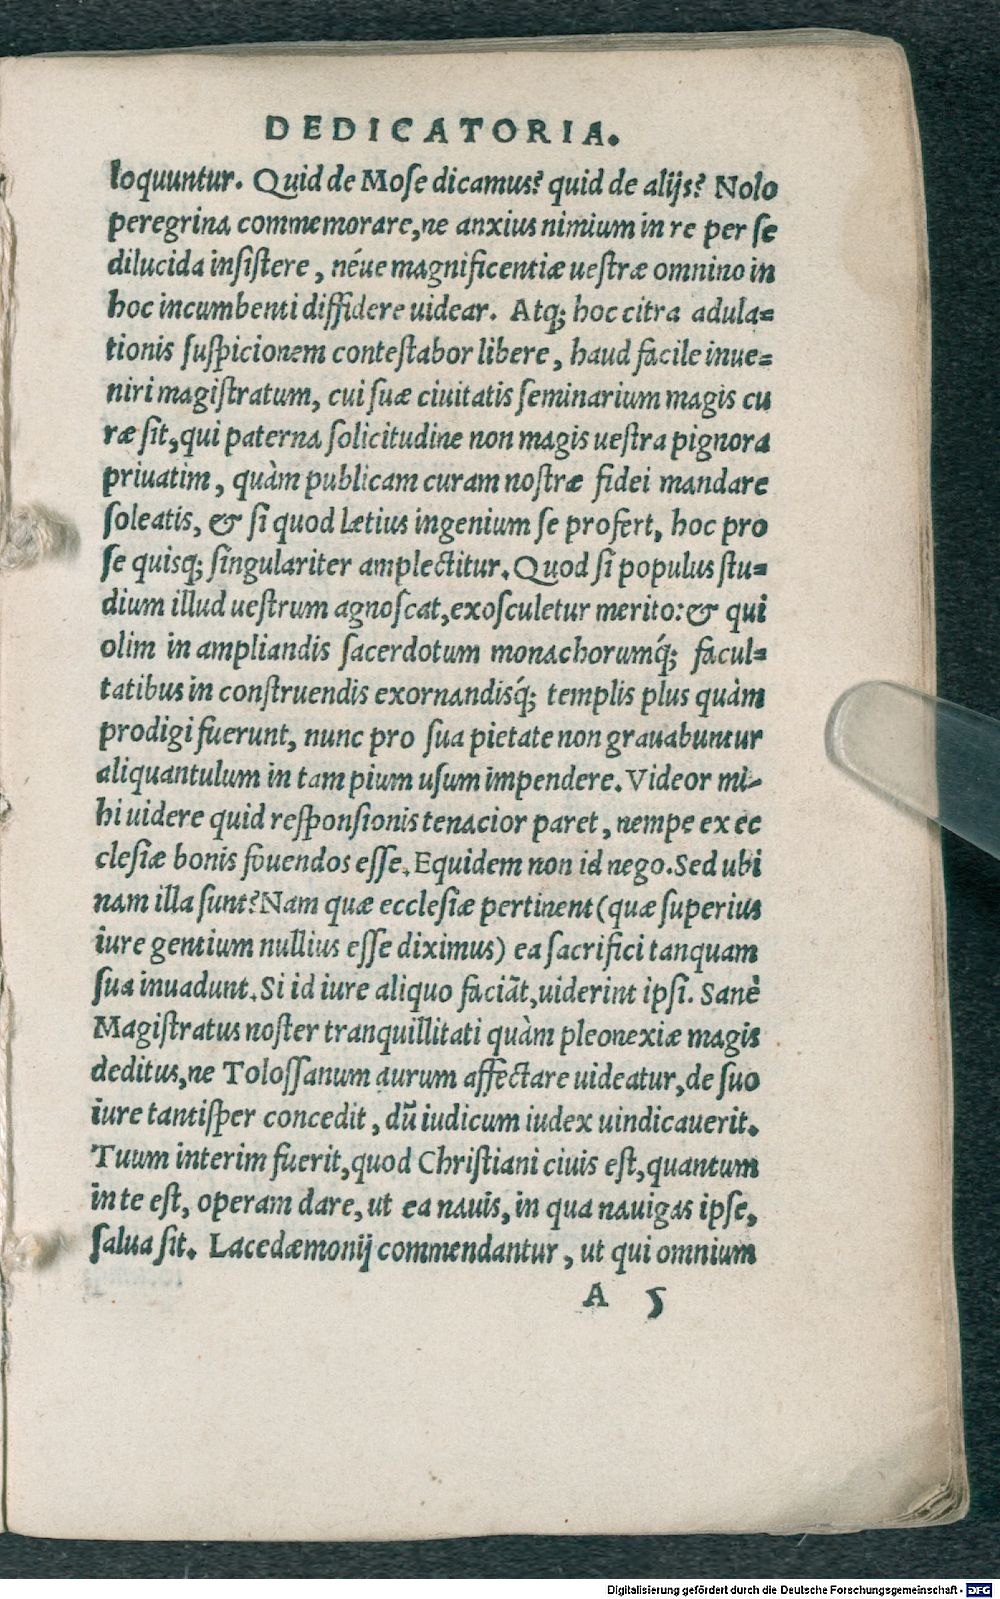 DEDICATORIA.
loquuntur. Quid de Mose dicamus? quid de alijs? Nolo
peregrina commemorare, ne anxius nimium in re per se
dilucida insistere, néue magnificentiæ uestræ omnino in
hoc incumbenti diffidere uidear. Atq; hoc citra adula=
tionis suspicionem contestabor libere, haud facile inue=
niri magistratum, cui suæ ciuitatis seminarium magis cu
ræ sit, qui paterna solicitudine non magis uestra pignora
priuatim, quàm publicam curam nostræ fidei mandare
soleatis, & si quod lætius ingenium se profert, hoc pro
se quisq; singulariter amplectitur. Quod si populus stu=
dium illud uestrum agnoscat, exosculetur merito: & qui
olim in ampliandis sacerdotum monachorumq́; facul=
tatibus in construendis exornandisq́; templis plus quàm
prodigi fuerunt, nunc pro sua pietate non grauabuntur
aliquantulum in tam pium usum impendere. Videor mi-
hi uidere quid responsionis tenacior paret, nempe ex ec
clesiæ bonis fouendos esse. Equidem non id nego. Sed ubi
nam illa sunt? Nam quæ ecclesiæ pertinent (quæ superius
iure gentium nullius esse diximus) ea sacrifici tanquam
sua inuadunt. Si id iure aliquo faciāt, uiderint ipsi. Sanè
Magistratus noster tranquillitati quàm pleonexiæ magis
deditus, ne Tolossanum aurum affectare uideatur, de suo
iure tantisper concedit, dū iudicum iudex uindicauerit.
Tuum interim fuerit, quod Christiani ciuis est, quantum
in te est, operam dare, ut ea nauis, in qua nauigas ipse,
salua sit. Lacedæmonij commendantur, ut qui omnium
A 5
Digitalisierung gefördert durch die Deutsche Forschungsgemeinschaft - DFG